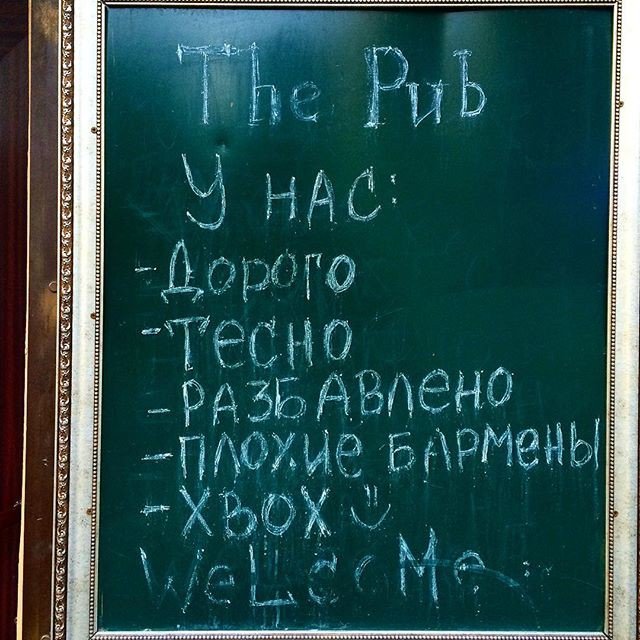 The Pub
У НАС:
-Дорого
-Тесно
-РАЗБАВЛЕНО
-ПЛОХИЕ БАРМЕНЫ
-XBOX :)
WeLcoMe